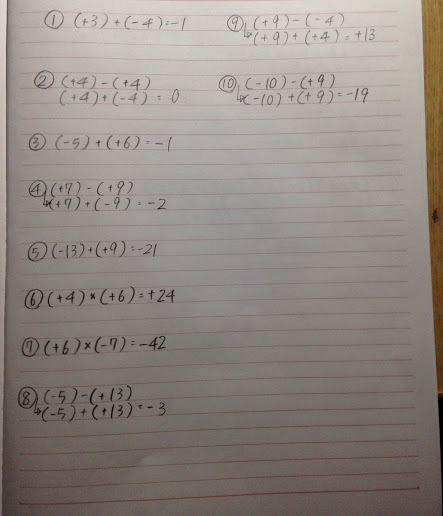 ① (+3)+(-4)=-1
② (+4)-(+4)
(+4)+(-4)=0
③ (-5)+(+6)=-1
④ (+7)-(+9)
↳(+7)+(-9)=-2
⑤ (-13)+(+9)=-21
⑥ (+4)×(+6)=+24
⑦ (+6)×(-7)=-42
⑧ (-5)-(+13)
↳(-5)+(+13)=-3
⑨ (+9)-(-4)
↳(+9)+(+4)=+13
⑩ (-10)-(+9)
↳(-10)+(+9)=-19